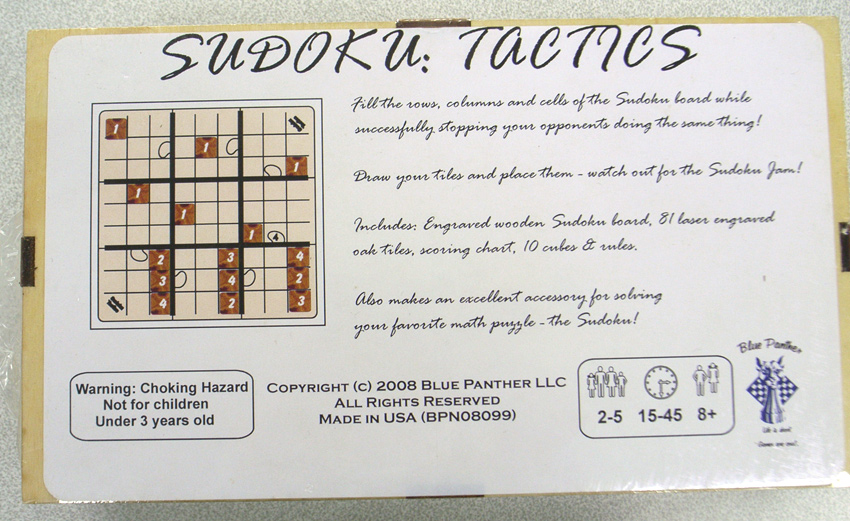 SUDOKU: TACTICS
Fill the rows, columns and cells of the Sudoku board while
successfully stopping your opponents doing the same thing!
Draw your tiles and place them - watch out for the Sudoku Jam!
Includes: Engraved wooden Sudoku board, 81 laser engraved
oak tiles, scoring chart, 10 cubes & rules.
Also makes an excellent accessory for solving
your favorite math puzzle - the Sudoku!
1
1
1
1
1
1 4
2 3 4
3 4 2
4 2 3
Warning: Choking Hazard
Not for children
Under 3 years old
COPYRIGHT (C) 2008 BLUE PANTHER LLC
ALL RIGHTS RESERVED
MADE IN USA (BPN08099)
2-5 15-45 8+
Blue Panther
Life is short.
Games are cool.